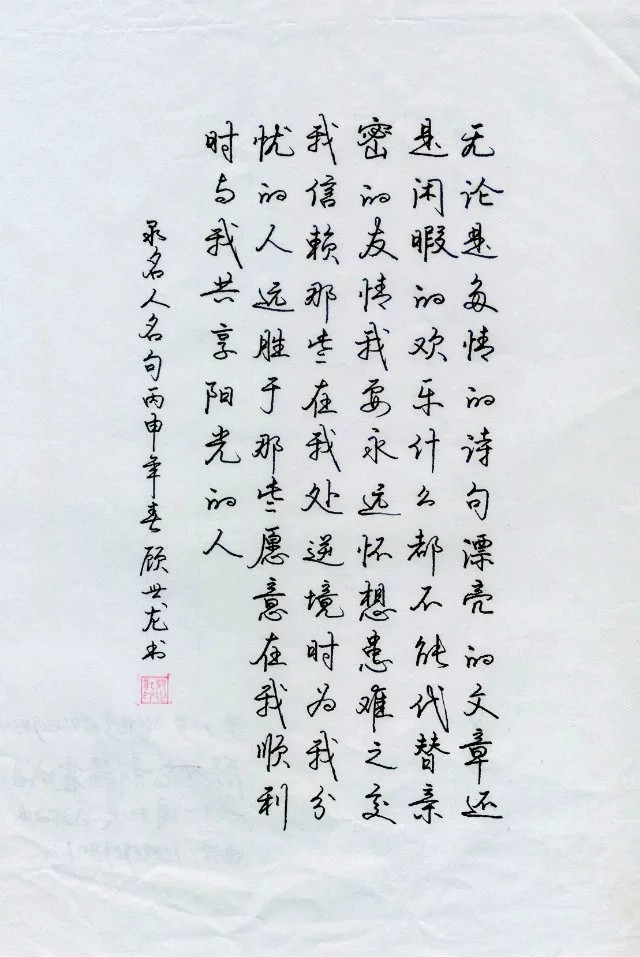 无论是多情的诗句漂亮的文章还
是闲暇的欢乐什么都不能代替亲
密的友情我要永远怀想患难之交
我信赖那些在我处逆境时为我分
忧的人远胜于那些愿意在我顺利
时与我共享阳光的人
录名人名句丙申年春顾世龙书